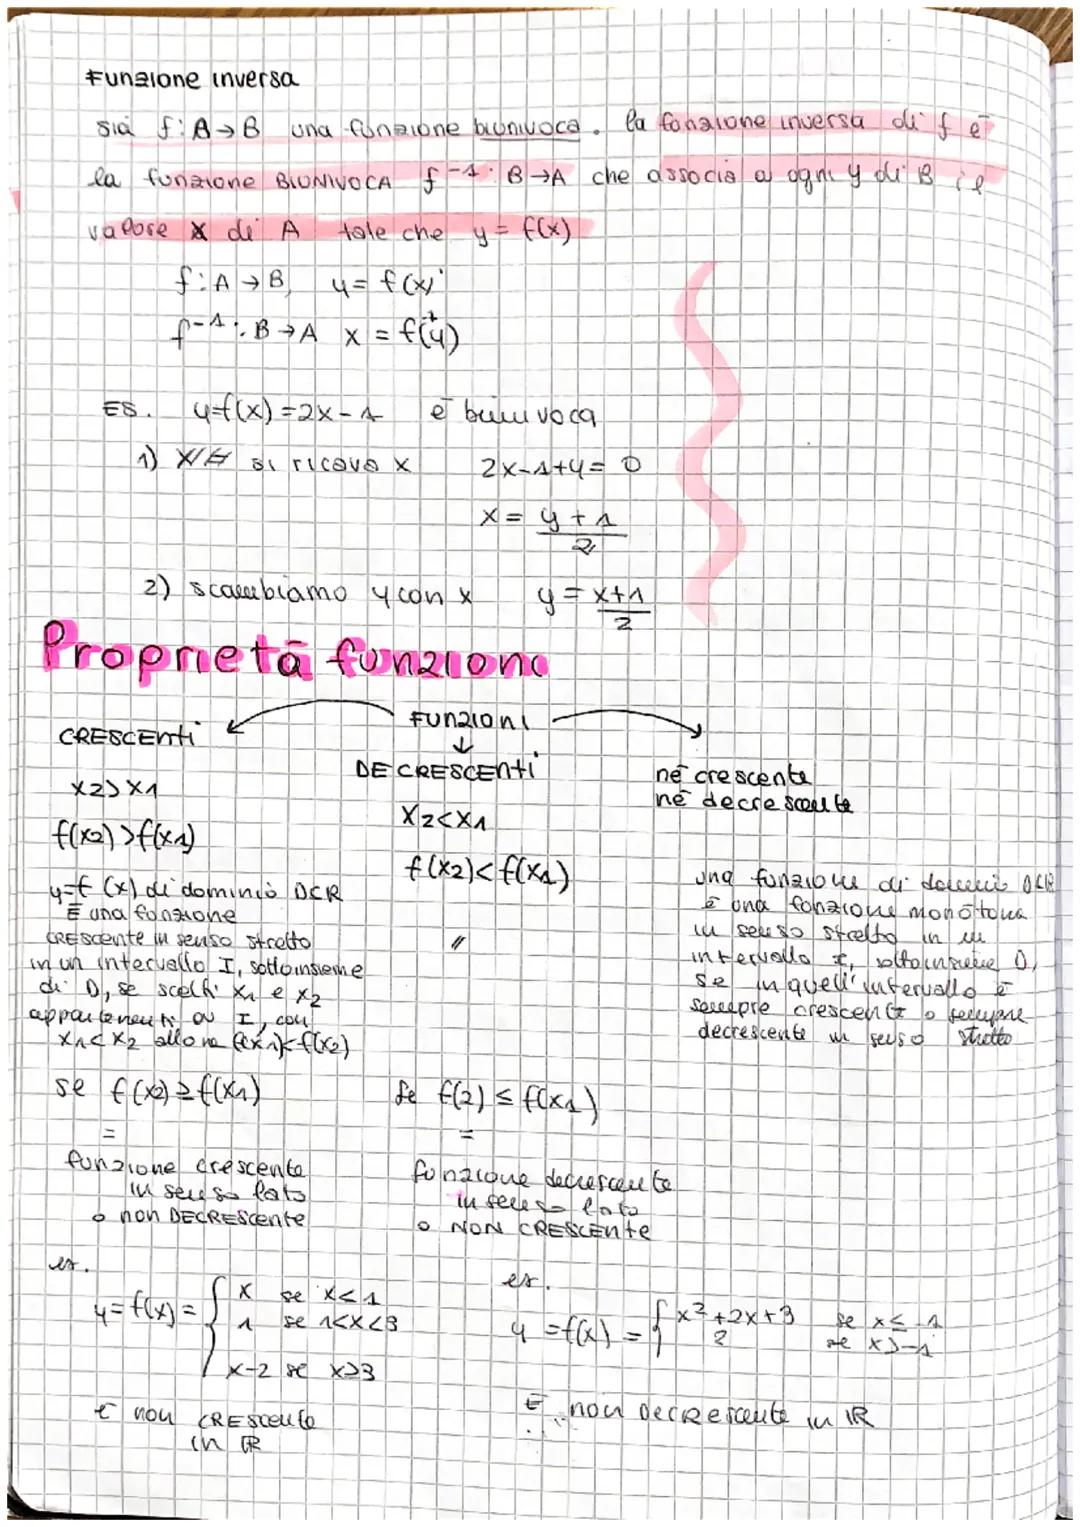 Funzione inversa
sia f: A→B una funzione biunivoca. la funzione inversa di f è
la funzione BIUNIVOCA f⁻¹: B→A che associa a ogni y di B il
valore x di A tale che y = f(x)
f: A→B, y = f(x)
f⁻¹: B→A x = f⁻¹(y)
ES. y=f(x)=2x-1 è biunivoca
1) si ricava x 2x-1+y= 0
x = y+1/2
2) scambiamo y con x y = x+1/2
Proprietà funzioni
FUNZIONI
CRESCENTI
DECRESCENTI
né crescente
né decrescente
x2>x1
f(x2)>f(x1)
x2<x1
f(x2)<f(x1)
y=f(x) di dominio DCR
È una funzione
CRESCENTE in senso stretto
in un intervallo I, sottoinsieme
di D, se scelti x1 e x2
appartenenti ad I, con
x1<x2 allora f(x1)<f(x2)
//
una funzione di dominio DCR
è una funzione monotona
in senso stretto in un
intervallo I, sottoinsieme D,
se in quell'intervallo è
sempre crescente o sempre
decrescente in senso stretto
se f(x2)≥f(x1)
=
funzione crescente
in senso lato
o non DECRESCENTE
se f(2) ≤ f(x1)
=
funzione decrescente
in senso lato
o NON CRESCENTE
es.
y=f(x)= { x se x<1
1 se 1<x<3
x-2 se x>3
è non CRESCENTE
in ℝ
es.
y=f(x) = { x²+2x+3 se x≤-1
2 se x>-1
È non DECRESCENTE in ℝ